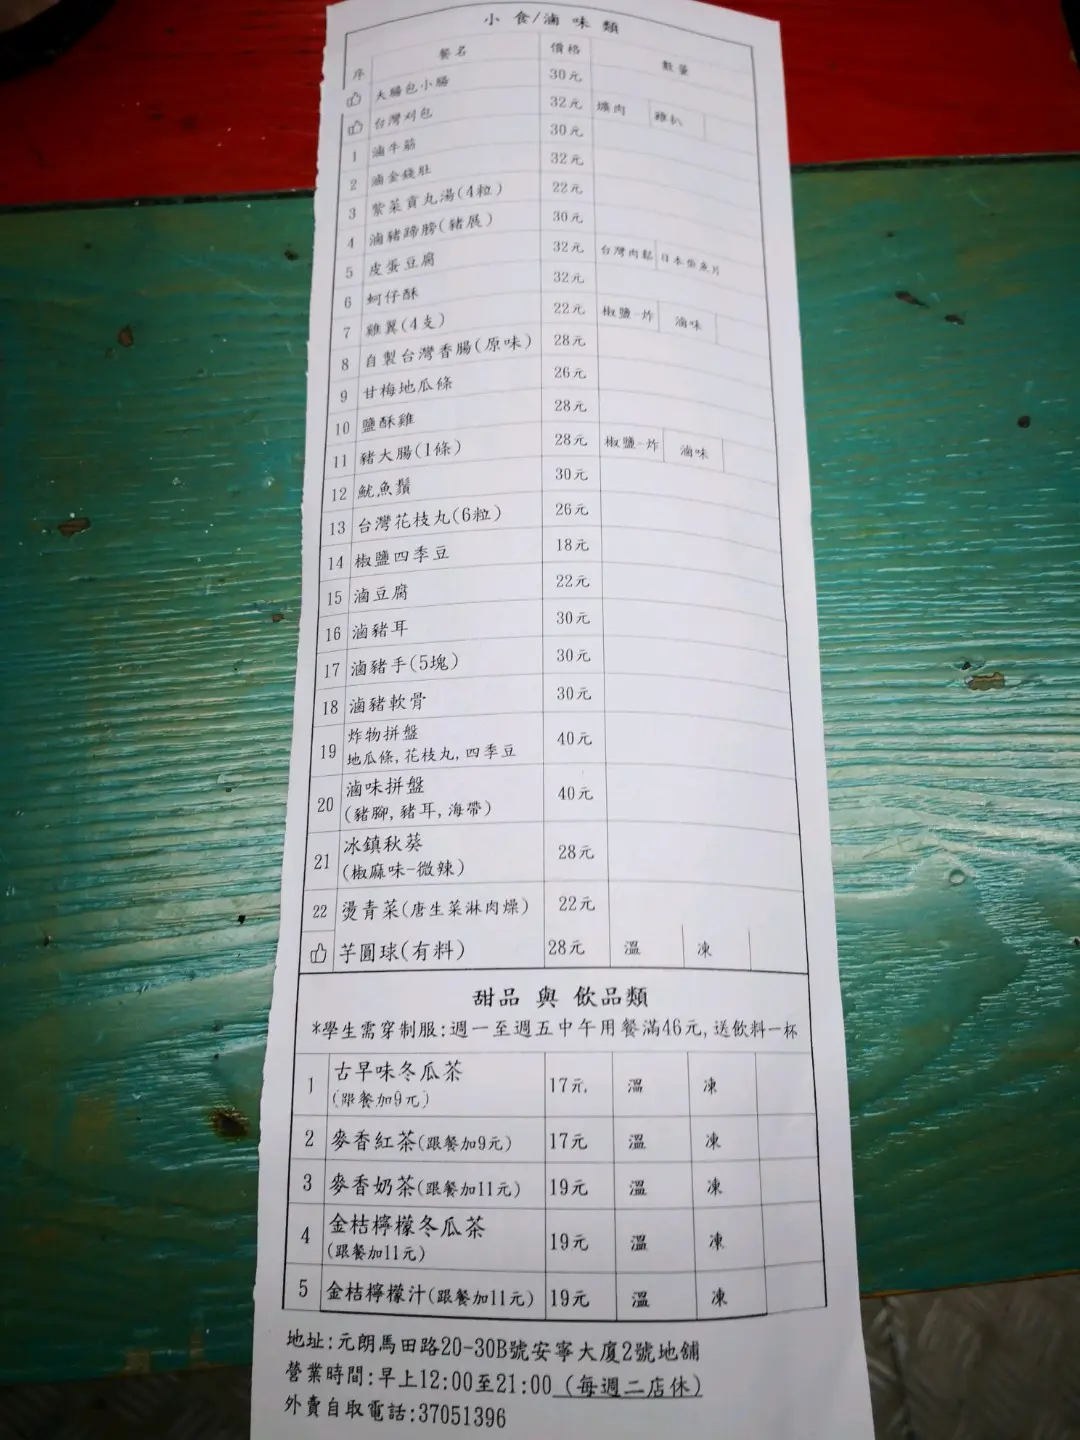 小食/滷味類
序 餐名 價格 數量
大腸包小腸 30元
台灣刈包 32元 爌肉 雞扒
1 滷牛筋 30元
2 滷金錢肚 32元
3 紫菜貢丸湯(4粒) 22元
4 滷豬蹄膀(豬展) 30元
5 皮蛋豆腐 32元 台灣肉鬆 日本柴魚片
6 蚵仔酥 32元
7 雞翼(4支) 22元 椒鹽-炸 滷味
8 自製台灣香腸(原味) 28元
9 甘梅地瓜條 26元
10 鹽酥雞 28元
11 豬大腸(1條) 28元 椒鹽-炸 滷味
12 魷魚鬚 30元
13 台灣花枝丸(6粒) 26元
14 椒鹽四季豆 18元
15 滷豆腐 22元
16 滷豬耳 30元
17 滷豬手(5塊) 30元
18 滷豬軟骨 30元
19 炸物拼盤 40元
地瓜條,花枝丸,四季豆
20 滷味拼盤 40元
(豬腳,豬耳,海帶)
21 冰鎮秋葵 28元
(椒麻味-微辣)
22 燙青菜(唐生菜淋肉燥) 22元
芋圓球(有料) 28元 溫 凍
甜品 與 飲品類
*學生需穿制服:週一至週五中午用餐滿46元,送飲料一杯
1 古早味冬瓜茶 17元 溫 凍
(跟餐加9元)
2 麥香紅茶(跟餐加9元) 17元 溫 凍
3 麥香奶茶(跟餐加11元) 19元 溫 凍
4 金桔檸檬冬瓜茶 19元 溫 凍
(跟餐加11元)
5 金桔檸檬汁(跟餐加11元) 19元 溫 凍
地址:元朗馬田路20-30B號安寧大廈2號地舖
營業時間:早上12:00至21:00 (每週二店休)
外賣自取電話:37051396